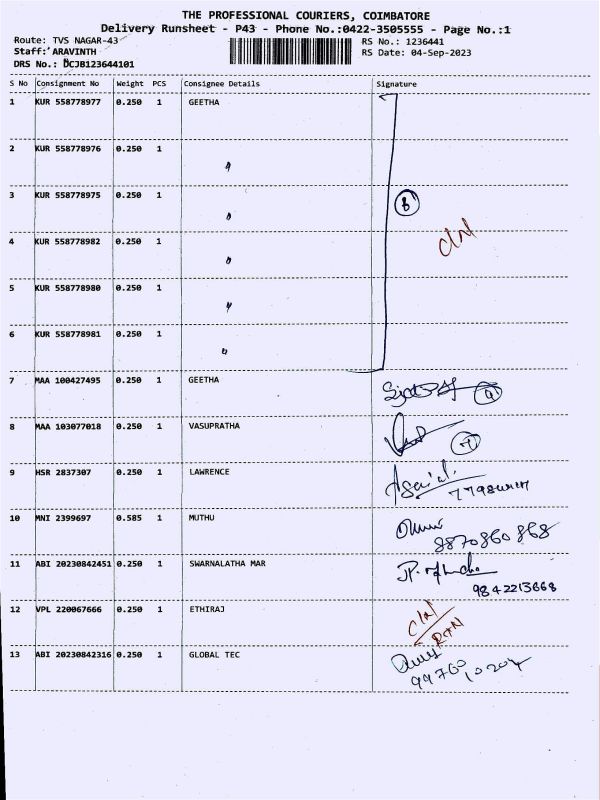 THE PROFESSIONAL COURIERS, COIMBATORE
Delivery Runsheet - P43 - Phone No.:0422-3505555 - Page No.:1
Route: TVS NAGAR-43
RS No.: 1236441
Staff: ARAVINTH
RS Date: 04-Sep-2023
DRS No.: DCJB123644101
S No Consignment No Weight PCS Consignee Details Signature
1 KUR 558778977 0.250 1 GEETHA
2 KUR 558778976 0.250 1
3 KUR 558778975 0.250 1
4 KUR 558778982 0.250 1
5 KUR 558778980 0.250 1
6 KUR 558778981 0.250 1
7 MAA 100427495 0.250 1 GEETHA
8 MAA 103077018 0.250 1 VASUPRATHA
9 HSR 2837307 0.250 1 LAWRENCE
10 MNI 2399697 0.585 1 MUTHU
8870860868
11 ABI 20230842451 0.250 1 SWARNALATHA MAR
9842213668
12 VPL 220067666 0.250 1 ETHIRAJ
13 ABI 20230842316 0.250 1 GLOBAL TEC